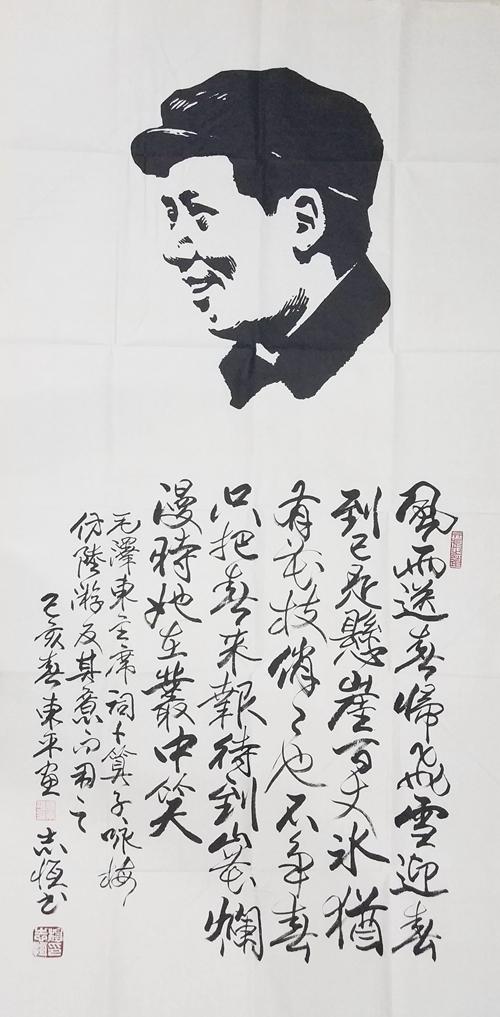 風雨送春歸飛雪迎春
到已是懸崖百丈冰猶
有花枝俏俏也不争春
只把春来報待到山花爛
漫時她在叢中笑
毛澤東主席詞卜算子咏梅
仿陸游反其意而用之
己亥春東平画
志恆书